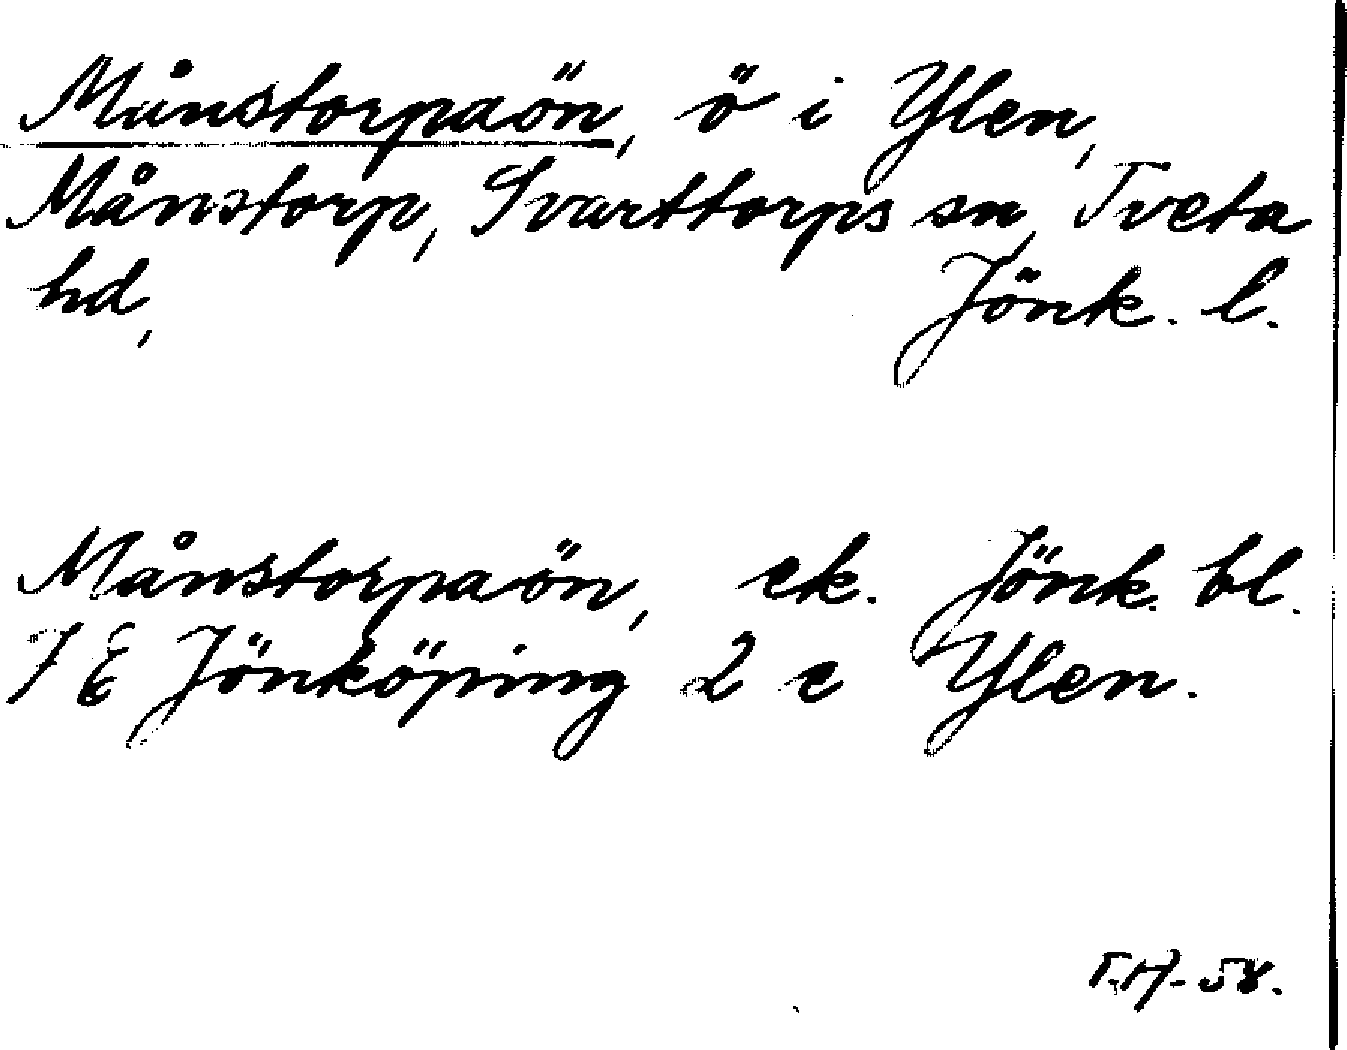 Månstorpaön, ö i Ylen,
Månstorp, Svarttorps sn, Tveta
hd, Jönk. l.
Månstorpaön, ek. Jönk. bl.
7 E Jönköping 2 e Ylen.
T.H. 58.